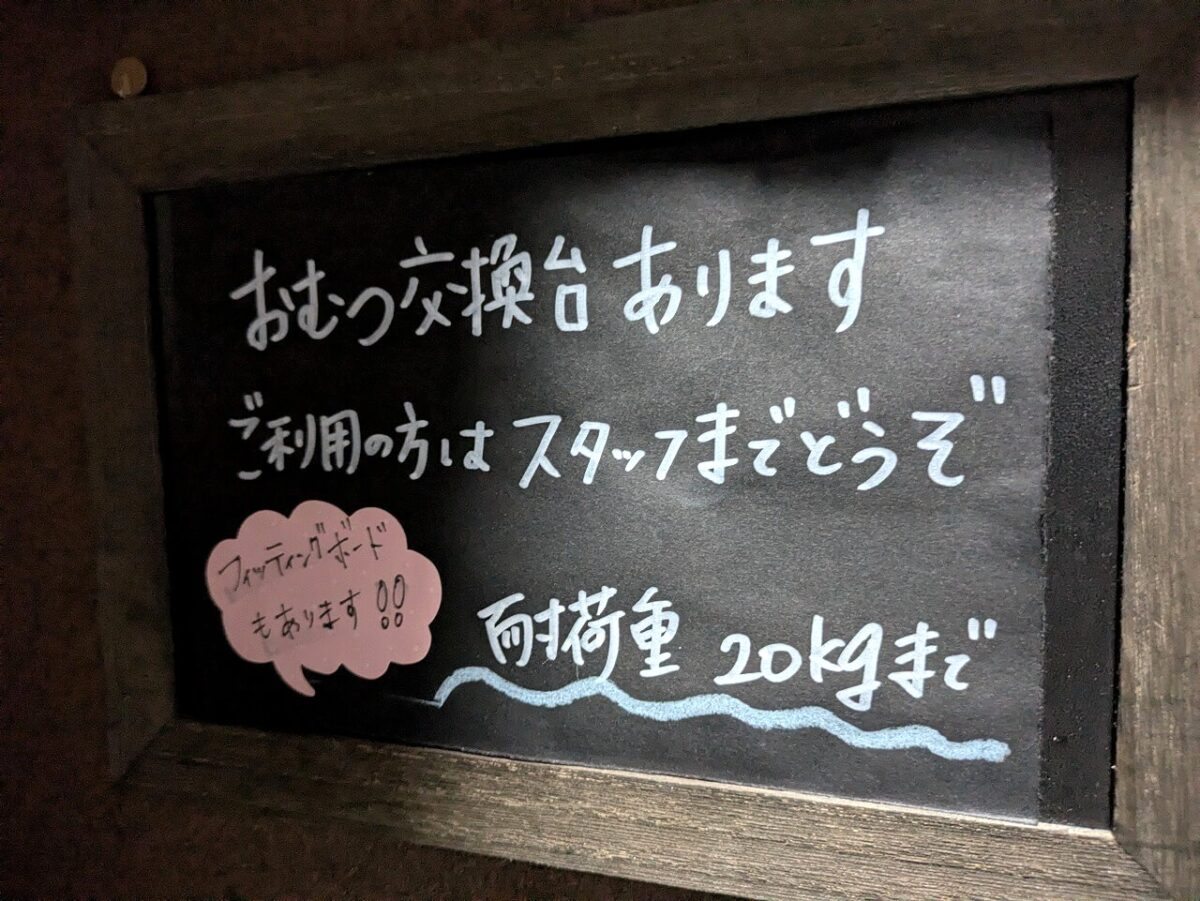 おむつ交換台あります
ご利用の方はスタッフまでどうぞ
フィッティングボード
もあります!!
耐荷重 20kgまで